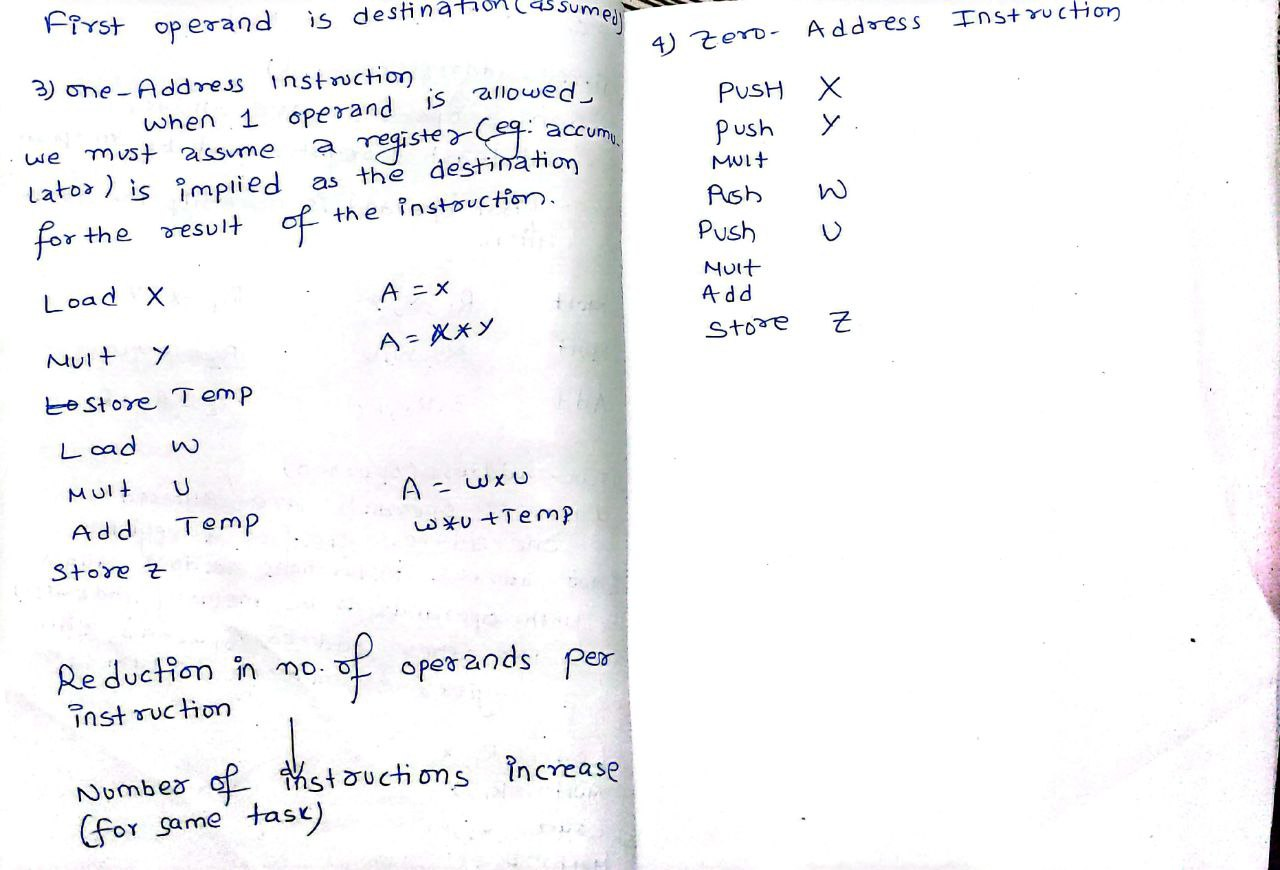 First operand is destination (assumed)
3) one-Address instruction
when 1 operand is allowed,
we must assume a register (eg: accumu
lator) is implied as the destination
for the result of the instruction.
Load X A = X
Mult Y A = X * Y
Store Temp
Load W
Mult U A = W x U
Add Temp W * U + Temp
Store Z
Reduction in no. of operands per
instruction
↓
Number of instructions increase
(for same task)
4) Zero- Address Instruction
PUSH X
Push Y
Mult
Push W
Push U
Mult
Add
Store Z